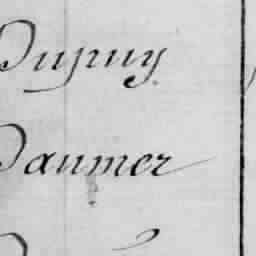 Dupuy
Daumer